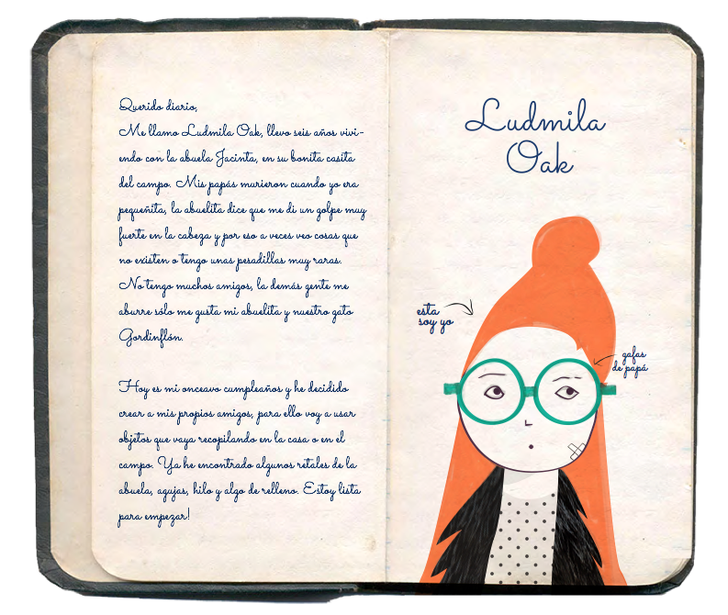 Querido diario,
Me llamo Ludmila Oak, llevo seis años vivi-
endo con la abuela Jacinta, en su bonita casita
del campo. Mis papás murieron cuando yo era
pequeñita, la abuelita dice que me di un golpe muy
fuerte en la cabeza y por eso a veces veo cosas que
no existen o tengo unas pesadillas muy raras.
No tengo muchos amigos, la demás gente me
aburre sólo me gusta mi abuelita y nuestro gato
Gordinflón.
Hoy es mi onceavo cumpleaños y he decidido
crear a mis propios amigos, para ello voy a usar
objetos que vaya recopilando en la casa o en el
campo. Ya he encontrado algunos retales de la
abuela, agujas, hilo y algo de relleno. Estoy lista
para empezar!
Ludmila
Oak
esta
soy yo
gafas
de papá